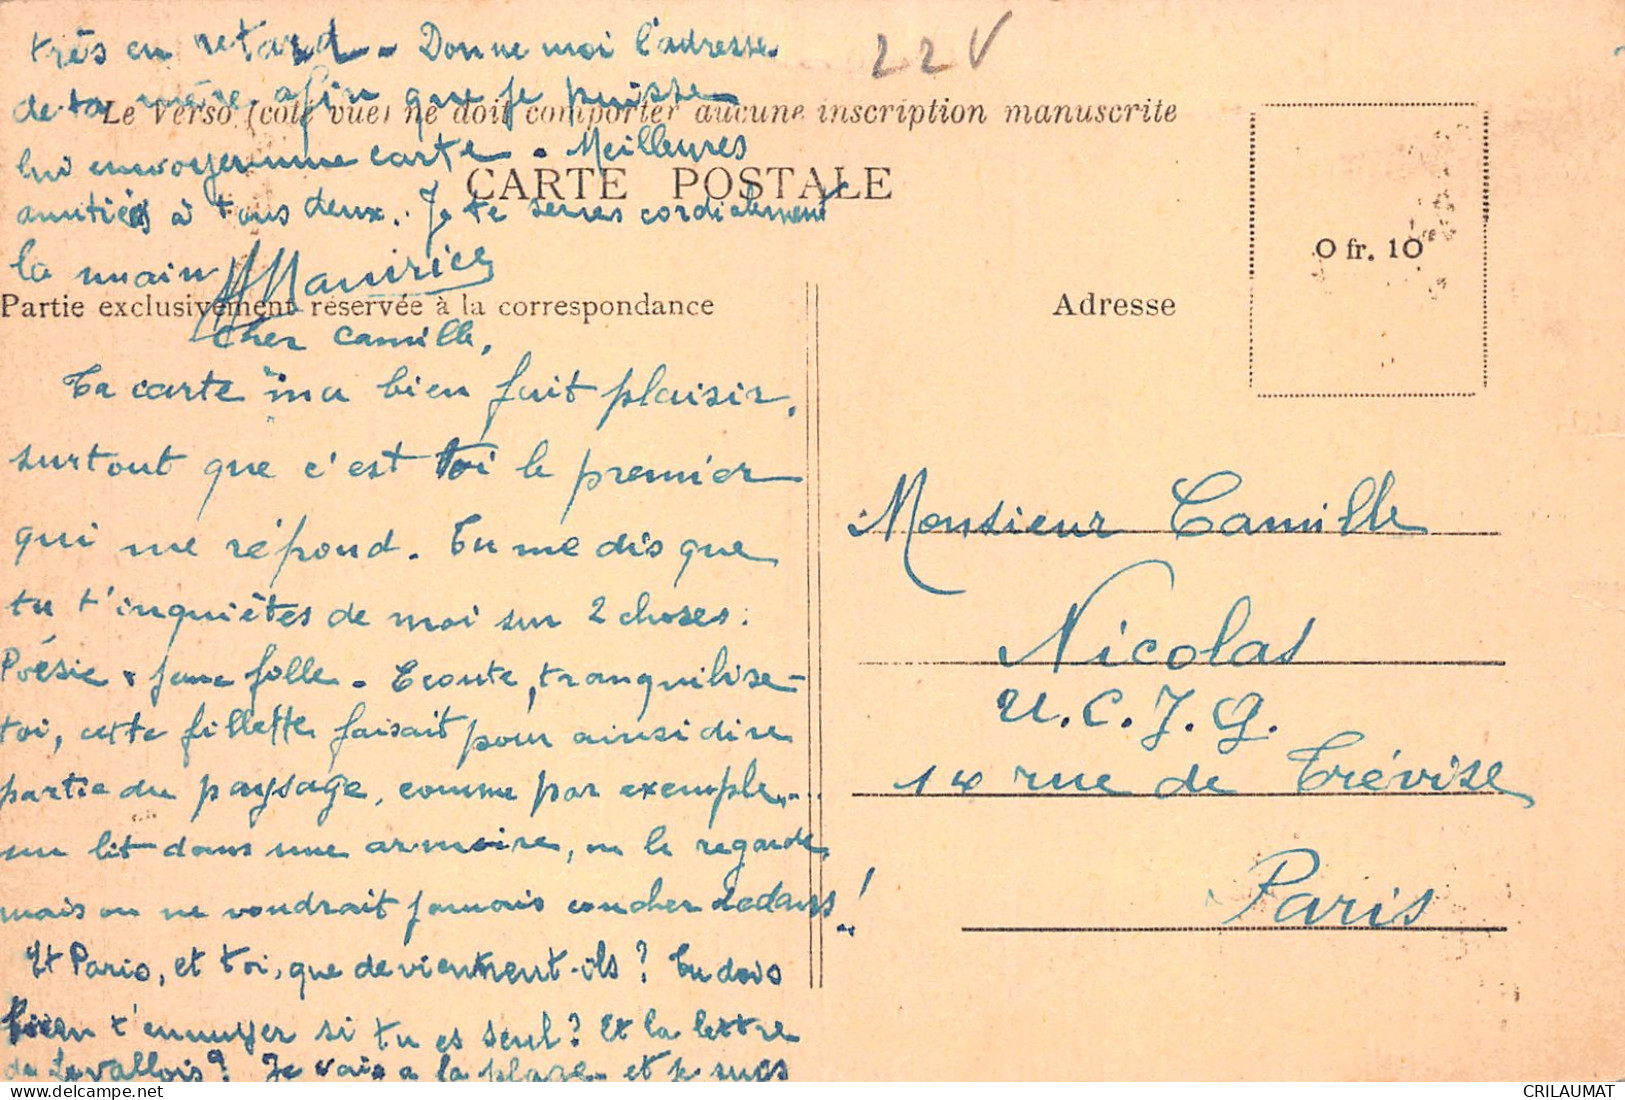 très en retard - Donne moi l'adresse
de ta mère afin que je puisse
lui envoyer une carte - Meilleures
amitiés à tous deux. Je te serres cordialement
la main Maurice
22V
Le Verso (côté vue) ne doit comporter aucune inscription manuscrite
CARTE POSTALE
0 fr. 10
Partie exclusivement réservée à la correspondance
Adresse
Cher Camille,
Ta carte m'a bien fait plaisir,
surtout que c'est toi le premier
qui me répond. Tu me dis que
tu t'inquiètes de moi sur 2 choses:
Poésie & jeune fille - Ecoute, tranquilise-
toi, cette fillette faisait pour ainsi dire
partie du paysage, comme par exemple...
un lit dans une armoire, on le regarde,
mais on ne voudrait jamais coucher dedans!
Et Paris, et toi, que deviennent-ils? Tu dois
bien t'ennuyer si tu es seul? Et la lettre
de Levallois? Je vais a la plage et je suis
Monsieur Camille
Nicolas
U.C.J.G.
14 rue de Trévise
Paris
CRILAUMAT